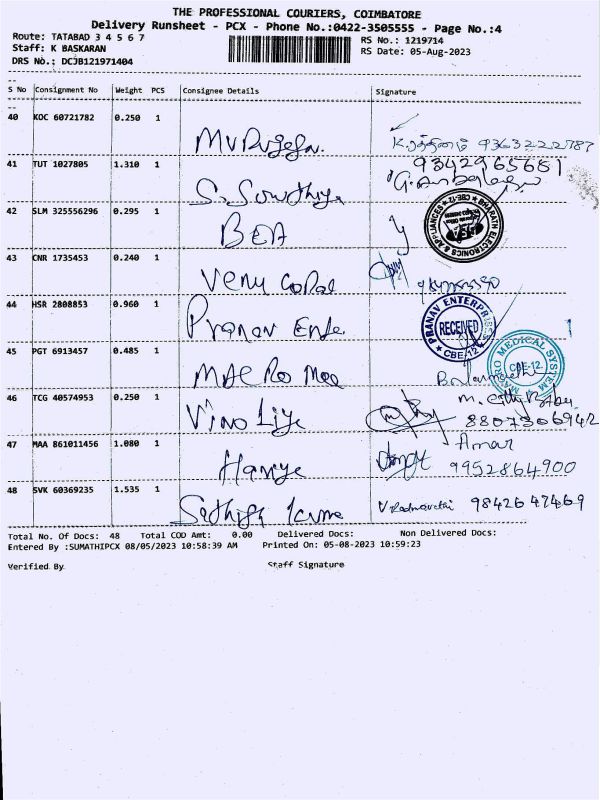 THE PROFESSIONAL COURIERS, COIMBATORE
Delivery Runsheet - PCX - Phone No.:0422-3505555 - Page No.:4
Route: TATABAD 3 4 5 6 7 RS No.: 1219714
Staff: K BASKARAN RS Date: 05-Aug-2023
DRS No.: DCJB121971404
S No Consignment No Weight PCS Consignee Details Signature
40 KOC 60721782 0.250 1
9363222787
41 TUT 1027805 1.310 1 9342965681
S. Sowthiya
42 SLM 325556296 0.295 1 BEA
BHARATH ELECTRONICS & APPLIANCES CBE-12
43 CNR 1735453 0.240 1
Venu Gopal
44 HSR 2808853 0.960 1 PRANAV ENTERPRISES RECEIVED CBE-12
Pranav Ente
45 PGT 6913457 0.485 1 MACRO MEDICAL SYSTEM CBE-12
MACRO Med
46 TCG 40574953 0.250 1 8807306942
47 MAA 861011456 1.080 1 Amar
9952864900
48 SVK 60369235 1.535 1 9842647469
Total No. Of Docs: 48 Total COD Amt: 0.00 Delivered Docs: Non Delivered Docs:
Entered By :SUMATHIPCX 08/05/2023 10:58:39 AM Printed On: 05-08-2023 10:59:23
Verified By Staff Signature